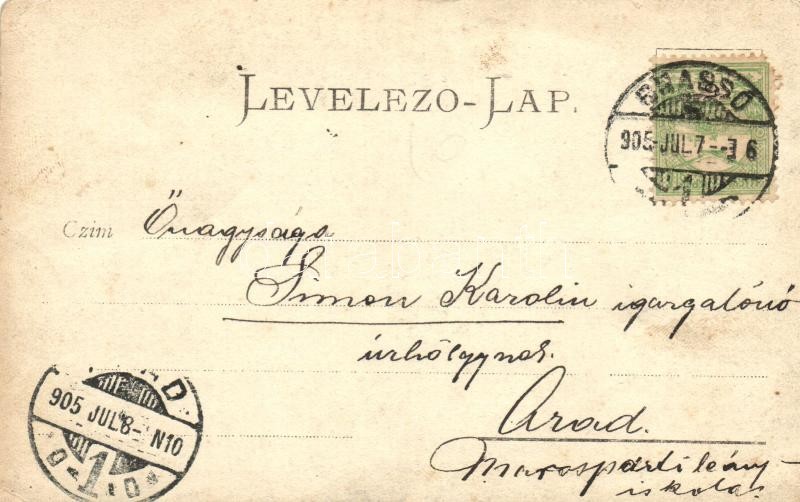 LEVELEZO-LAP.
BRASSÓ
905 JUL. 7
Czím Őnagysága
Simon Karolin igazgatónő
úrhölgynek.
Arad.
Marosparti leány-
iskola
ARAD
905 JUL 8- N10